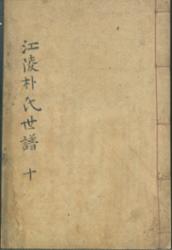 江陵朴氏世譜 十